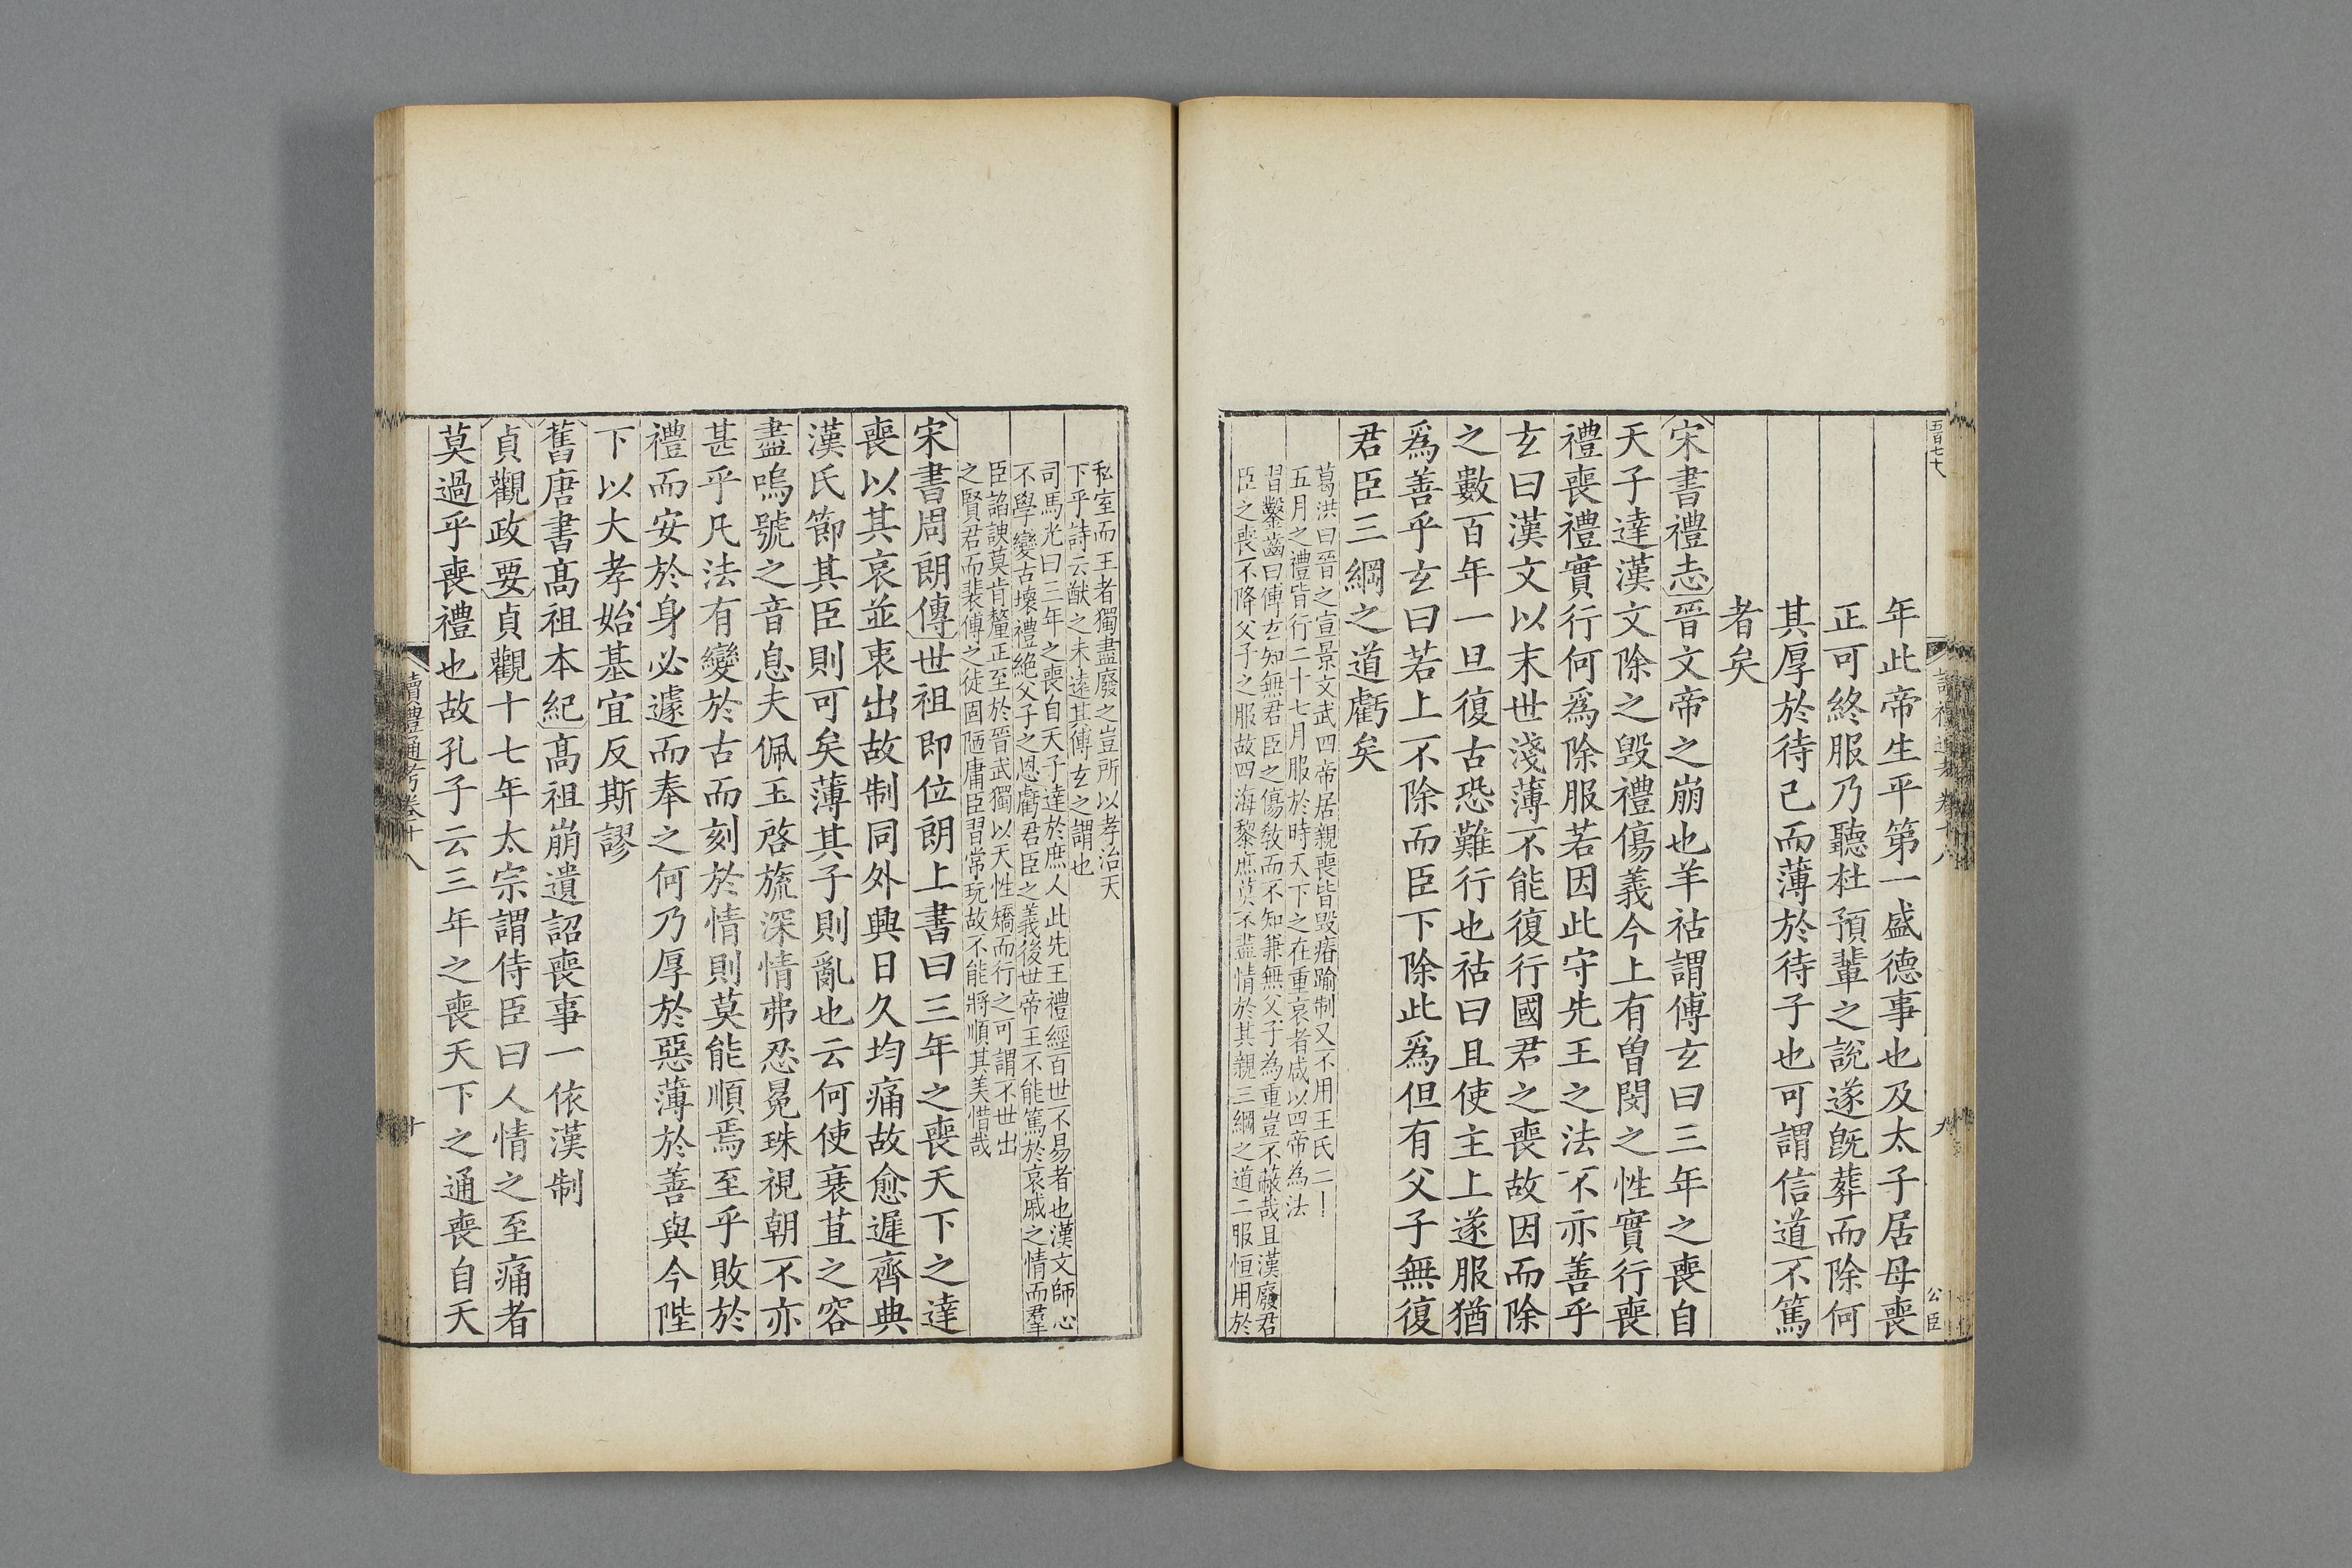 五百七十
讀禮通考卷十八
九
公臣
年此帝生平第一盛德事也及太子居母喪
正可終服乃聽杜預輩之說遂旣葬而除何
其厚於待己而薄於待子也可謂信道不篤
者矣
宋書禮志晉文帝之崩也羊祜謂傅玄曰三年之喪自
天子達漢文除之毀禮傷義今上有曾閔之性實行喪
禮喪禮實行何爲除服若因此守先王之法不亦善乎
玄曰漢文以末世淺薄不能復行國君之喪故因而除
之數百年一旦復古恐難行也祜曰且使主上遂服猶
爲善乎玄曰若上不除而臣下除此爲但有父子無復
君臣三綱之道虧矣
葛洪曰晉之宣景文武四帝居親喪皆毀瘠踰制又不用王氏二十
五月之禮皆行二十七月服於時天下之在重哀者咸以四帝為法
習鑿齒曰傅玄知無君臣之傷教而不知兼無父子為重豈不蔽哉且漢廢君
臣之喪不降父子之服故四海黎庶莫不盡情於其親三綱之道二服恒用於
私室而王者獨盡廢之豈所以孝治天
下乎詩云猷之未遠其傅玄之謂也
司馬光曰三年之喪自天子達於庶人此先王禮經百世不易者也漢文師心
不學變古壞禮絶父子之恩虧君臣之義後世帝王不能篤於哀戚之情而羣
臣諂諛莫肯釐正至於晉武獨以天性矯而行之可謂不世出
之賢君而裴傅之徒固陋庸臣習常玩故不能將順其美惜哉
宋書周朗傳世祖即位朗上書曰三年之喪天下之達
喪以其哀並衷出故制同外興日久均痛故愈遲齊典
漢氏節其臣則可矣薄其子則亂也云何使衰苴之容
盡嗚號之音息夫佩玉啓旒深情弗忍冕珠視朝不亦
甚乎凡法有變於古而刻於情則莫能順焉至乎敗於
禮而安於身必遽而奉之何乃厚於惡薄於善與今陛
下以大孝始基宜反斯謬
舊唐書高祖本紀高祖崩遺詔喪事一依漢制
貞觀政要貞觀十七年太宗謂侍臣曰人情之至痛者
莫過乎喪禮也故孔子云三年之喪天下之通喪自天
讀禮通考卷十八
十